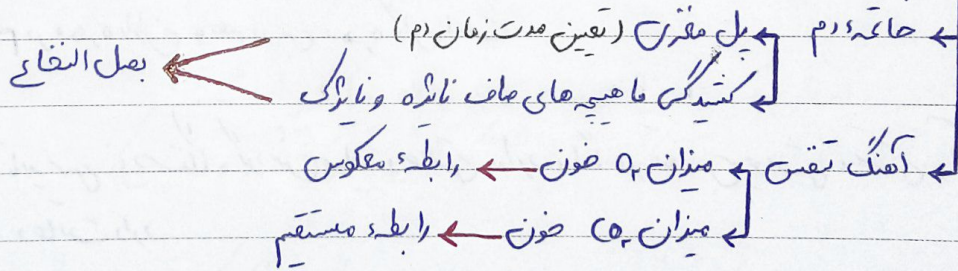 خاتمهٔ دم ← پل مغزی (تعیین مدت زمان دم)
بصل النخاع
کشیدگی ماهیچه های صاف نایژه و نایژک
آهنگ تنفس ← میزان O₂ خون ← رابطهٔ معکوس
میزان CO₂ خون ← رابطهٔ مستقیم